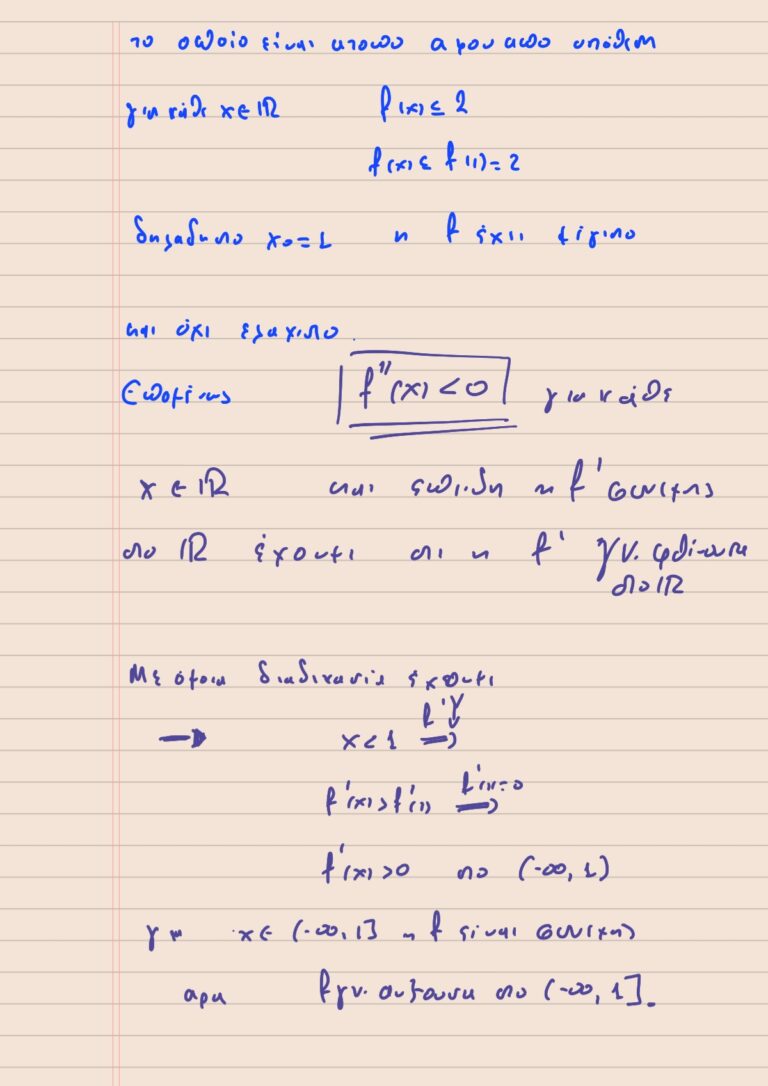 το οποίο είναι ατοπο αφου απο υπόθεση
για κάθε x∈ℝ f(x) ≤ 2
f(x) ≤ f(1) = 2
δηλαδη στο x₀ = 1 η f έχει μέγιστο
και όχι ελαχιστο.
Επομένως f''(x) < 0 για κάθε
x ∈ ℝ και επειδη η f' συνεχης
στο ℝ έχουμε οτι η f' γν. φθίνουσα
στο ℝ
Με όμοια διαδικασία έχουμε
→ x < 1 f'↘ ⇒
f'(x) > f'(1) f'(1)=0 ⇒
f'(x) > 0 στο (-∞, 1)
για x ∈ (-∞, 1] η f είναι συνεχης
αρα f γν. αυξουσα στο (-∞, 1].